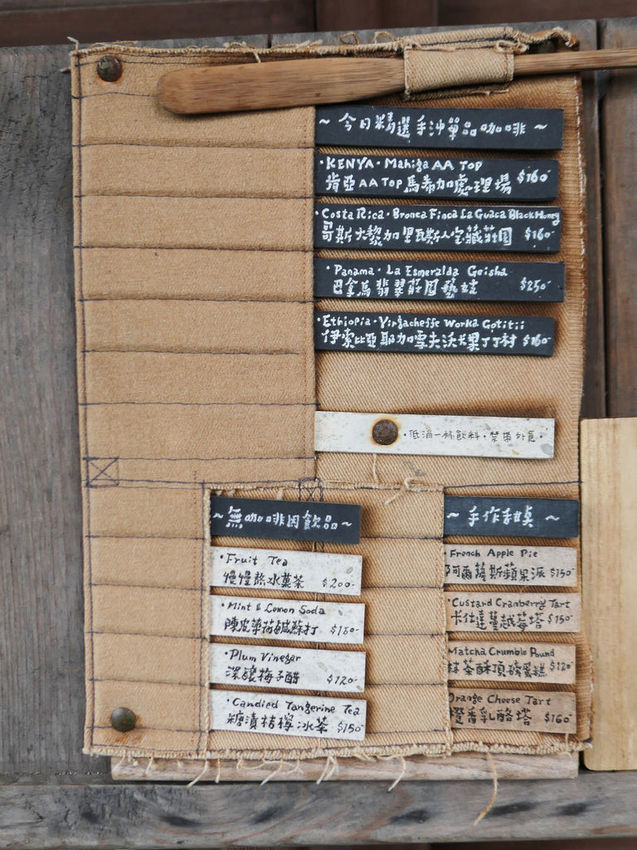 ~ 今日精選手沖單品咖啡 ~
·KENYA·Mahiga AA TOP
肯亞AA TOP馬希加處理場 $160
·Costa Rica·Bronca Finca La Guaca Black Honey
哥斯大黎加 里瓦斯 莊園 $160
·Panama·La Esmeralda Geisha
巴拿馬 翡翠莊園 藝妓 $250
·Ethiopia·Yirgacheffe Worka Gotitii
伊索比亞 耶加雪夫 沃卡 果丁丁村 $160
·低消一杯飲料·禁帶外食·
~無咖啡因飲品~
·Fruit Tea
慢慢飲水菓茶 $200
·Mint & Lemon Soda
陳皮薄荷鹹酥打 $180
·Plum Vinegar
深釀梅子醋 $120
·Candied Tangerine Tea
糖漬桔檸冰茶 $150
~手作甜点~
French Apple Pie
阿爾薩斯蘋果派 $150
·Custard Cranberry Tart
卡仕達蔓越莓塔 $150
Matcha Crumble Pound
抹茶酥頂磅蛋糕 $120
Orange Cheese Tart
橙香乳酪塔 $160